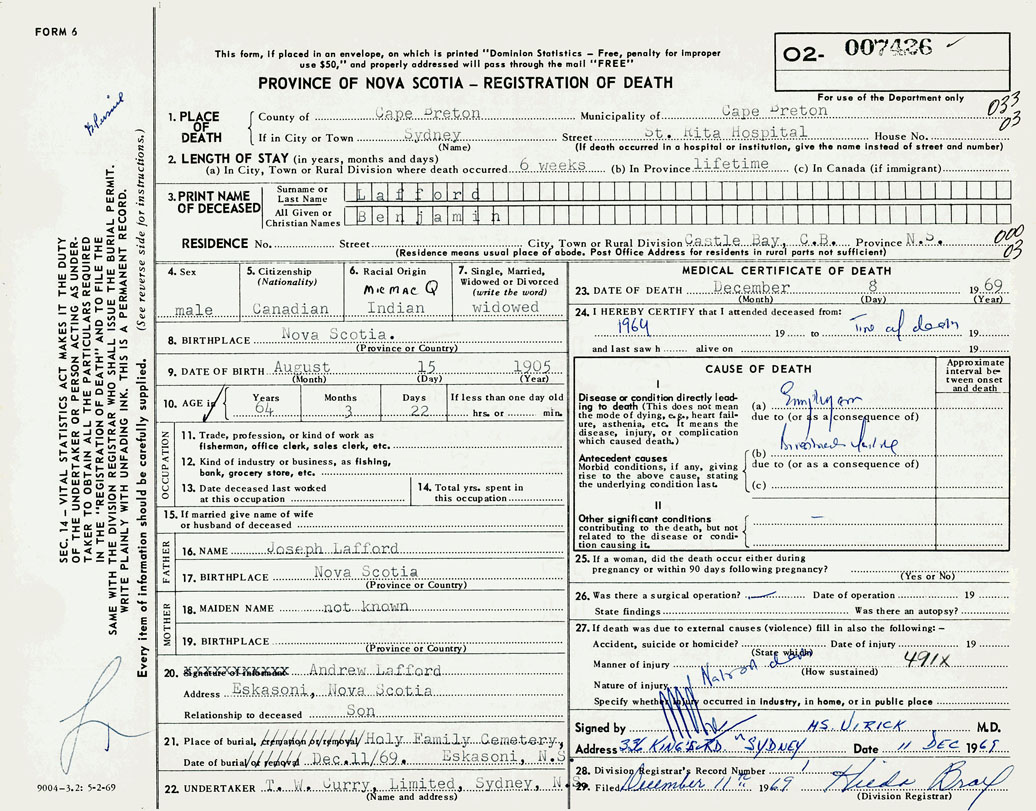 FORM 6
This form, if placed in an envelope, on which is printed "Dominion Statistics – Free, penalty for improper
use $50," and properly addressed will pass through the mail "FREE"
O2- 007426
PROVINCE OF NOVA SCOTIA – REGISTRATION OF DEATH
For use of the Department only
033
03
1. PLACE OF DEATH County of Cape Breton Municipality of Cape Breton
If in City or Town Sydney Street St. Rita Hospital House No.
(Name) (If death occurred in a hospital or institution, give the name instead of street and number)
2. LENGTH OF STAY (in years, months and days)
(a) In City, Town or Rural Division where death occurred 6 weeks (b) In Province lifetime (c) In Canada (if immigrant)
3. PRINT NAME OF DECEASED Surname or Last Name Lafford
All Given or Christian Names Benjamin
RESIDENCE No. Street City, Town or Rural Division Castle Bay, C.B. Province N.S.
(Residence means usual place of abode. Post Office Address for residents in rural parts not sufficient)
000
03
4. Sex male
5. Citizenship (Nationality) Canadian
6. Racial Origin MICMAC Indian
7. Single, Married, Widowed or Divorced (write the word) widowed
8. BIRTHPLACE Nova Scotia.
(Province or Country)
9. DATE OF BIRTH August 15 1905
(Month) (Day) (Year)
10. AGE in Years 64 Months 3 Days 22 If less than one day old hrs. or min.
OCCUPATION
11. Trade, profession, or kind of work as
fisherman, office clerk, sales clerk, etc.
12. Kind of industry or business, as fishing,
bank, grocery store, etc.
13. Date deceased last worked
at this occupation
14. Total yrs. spent in
this occupation
15. If married give name of wife
or husband of deceased
FATHER
16. NAME Joseph Lafford
17. BIRTHPLACE Nova Scotia
(Province or Country)
MOTHER
18. MAIDEN NAME not known
19. BIRTHPLACE
(Province or Country)
20. Signature of Informant Andrew Lafford
Address Eskasoni, Nova Scotia
Relationship to deceased Son
21. Place of burial, cremation or removal Holy Family Cemetery,
Date of burial or removal Dec.11/69. Eskasoni, N.S.
22. UNDERTAKER T. W. Curry, Limited, Sydney, N.S.
(Name and address)
MEDICAL CERTIFICATE OF DEATH
23. DATE OF DEATH December 8 1969
(Month) (Day) (Year)
24. I HEREBY CERTIFY that I attended deceased from:
1964 19 to Time of death 19
and last saw h alive on 19
CAUSE OF DEATH
Approximate interval between onset and death
I
Disease or condition directly leading
to death (This does not mean
the mode of dying, e.g., heart failure,
asthenia, etc. It means the
disease, injury, or complication
which caused death.)
(a)
due to (or as a consequence of)
Antecedent causes
Morbid conditions, if any, giving
rise to the above cause, stating
the underlying condition last.
(b)
due to (or as a consequence of)
(c)
II
Other significant conditions
contributing to the death, but not
related to the disease or condition
causing it.
25. If a woman, did the death occur either during
pregnancy or within 90 days following pregnancy?
(Yes or No)
26. Was there a surgical operation? Date of operation 19
State findings Was there an autopsy?
27. If death was due to external causes (violence) fill in also the following: –
Accident, suicide or homicide? Date of injury 19
(State which)
Manner of injury 491X
(How sustained)
Nature of injury Natural death
Specify whether injury occurred in industry, in home, or in public place
Signed by H.S. UIRICK M.D.
Address 336 KINGS RD. SYDNEY Date 11 DEC 1969
28. Division Registrar's Record Number 1
29. Filed December 11th 1969 Hilda Bray
(Division Registrar)
SEC. 14 – VITAL STATISTICS ACT MAKES IT THE DUTY
OF THE UNDERTAKER OR PERSON ACTING AS UNDER-
TAKER TO OBTAIN ALL THE PARTICULARS REQUIRED
IN THE "REGISTRATION OF DEATH" AND TO FILE THE
SAME WITH THE DIVISION REGISTRAR WHO SHALL ISSUE THE BURIAL PERMIT.
WRITE PLAINLY WITH UNFADING INK. THIS IS A PERMANENT RECORD.
Every item of information should be carefully supplied. (See reverse side for instructions.)
9004–3.2: 5-2-69